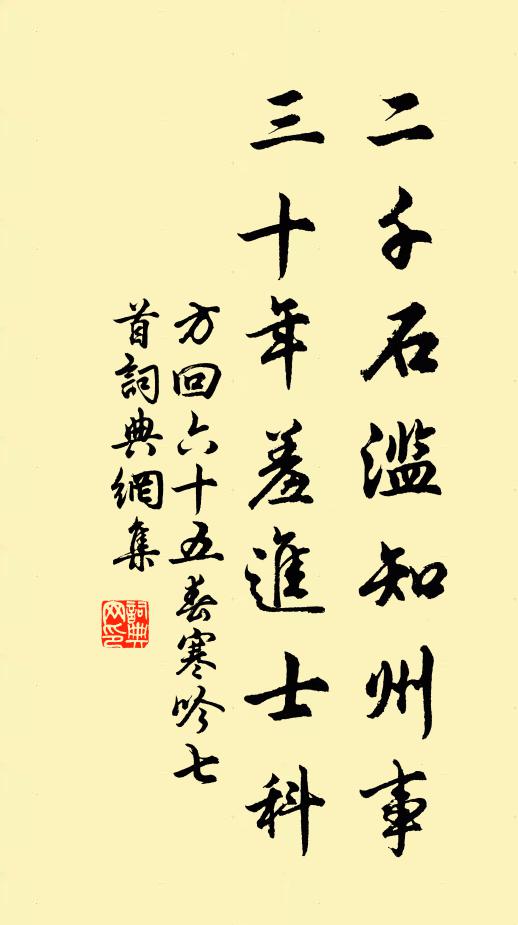 二千石濫知州事
三十年羞進士科
方回六十五春寒吟七
首詞典網集
詞典网印